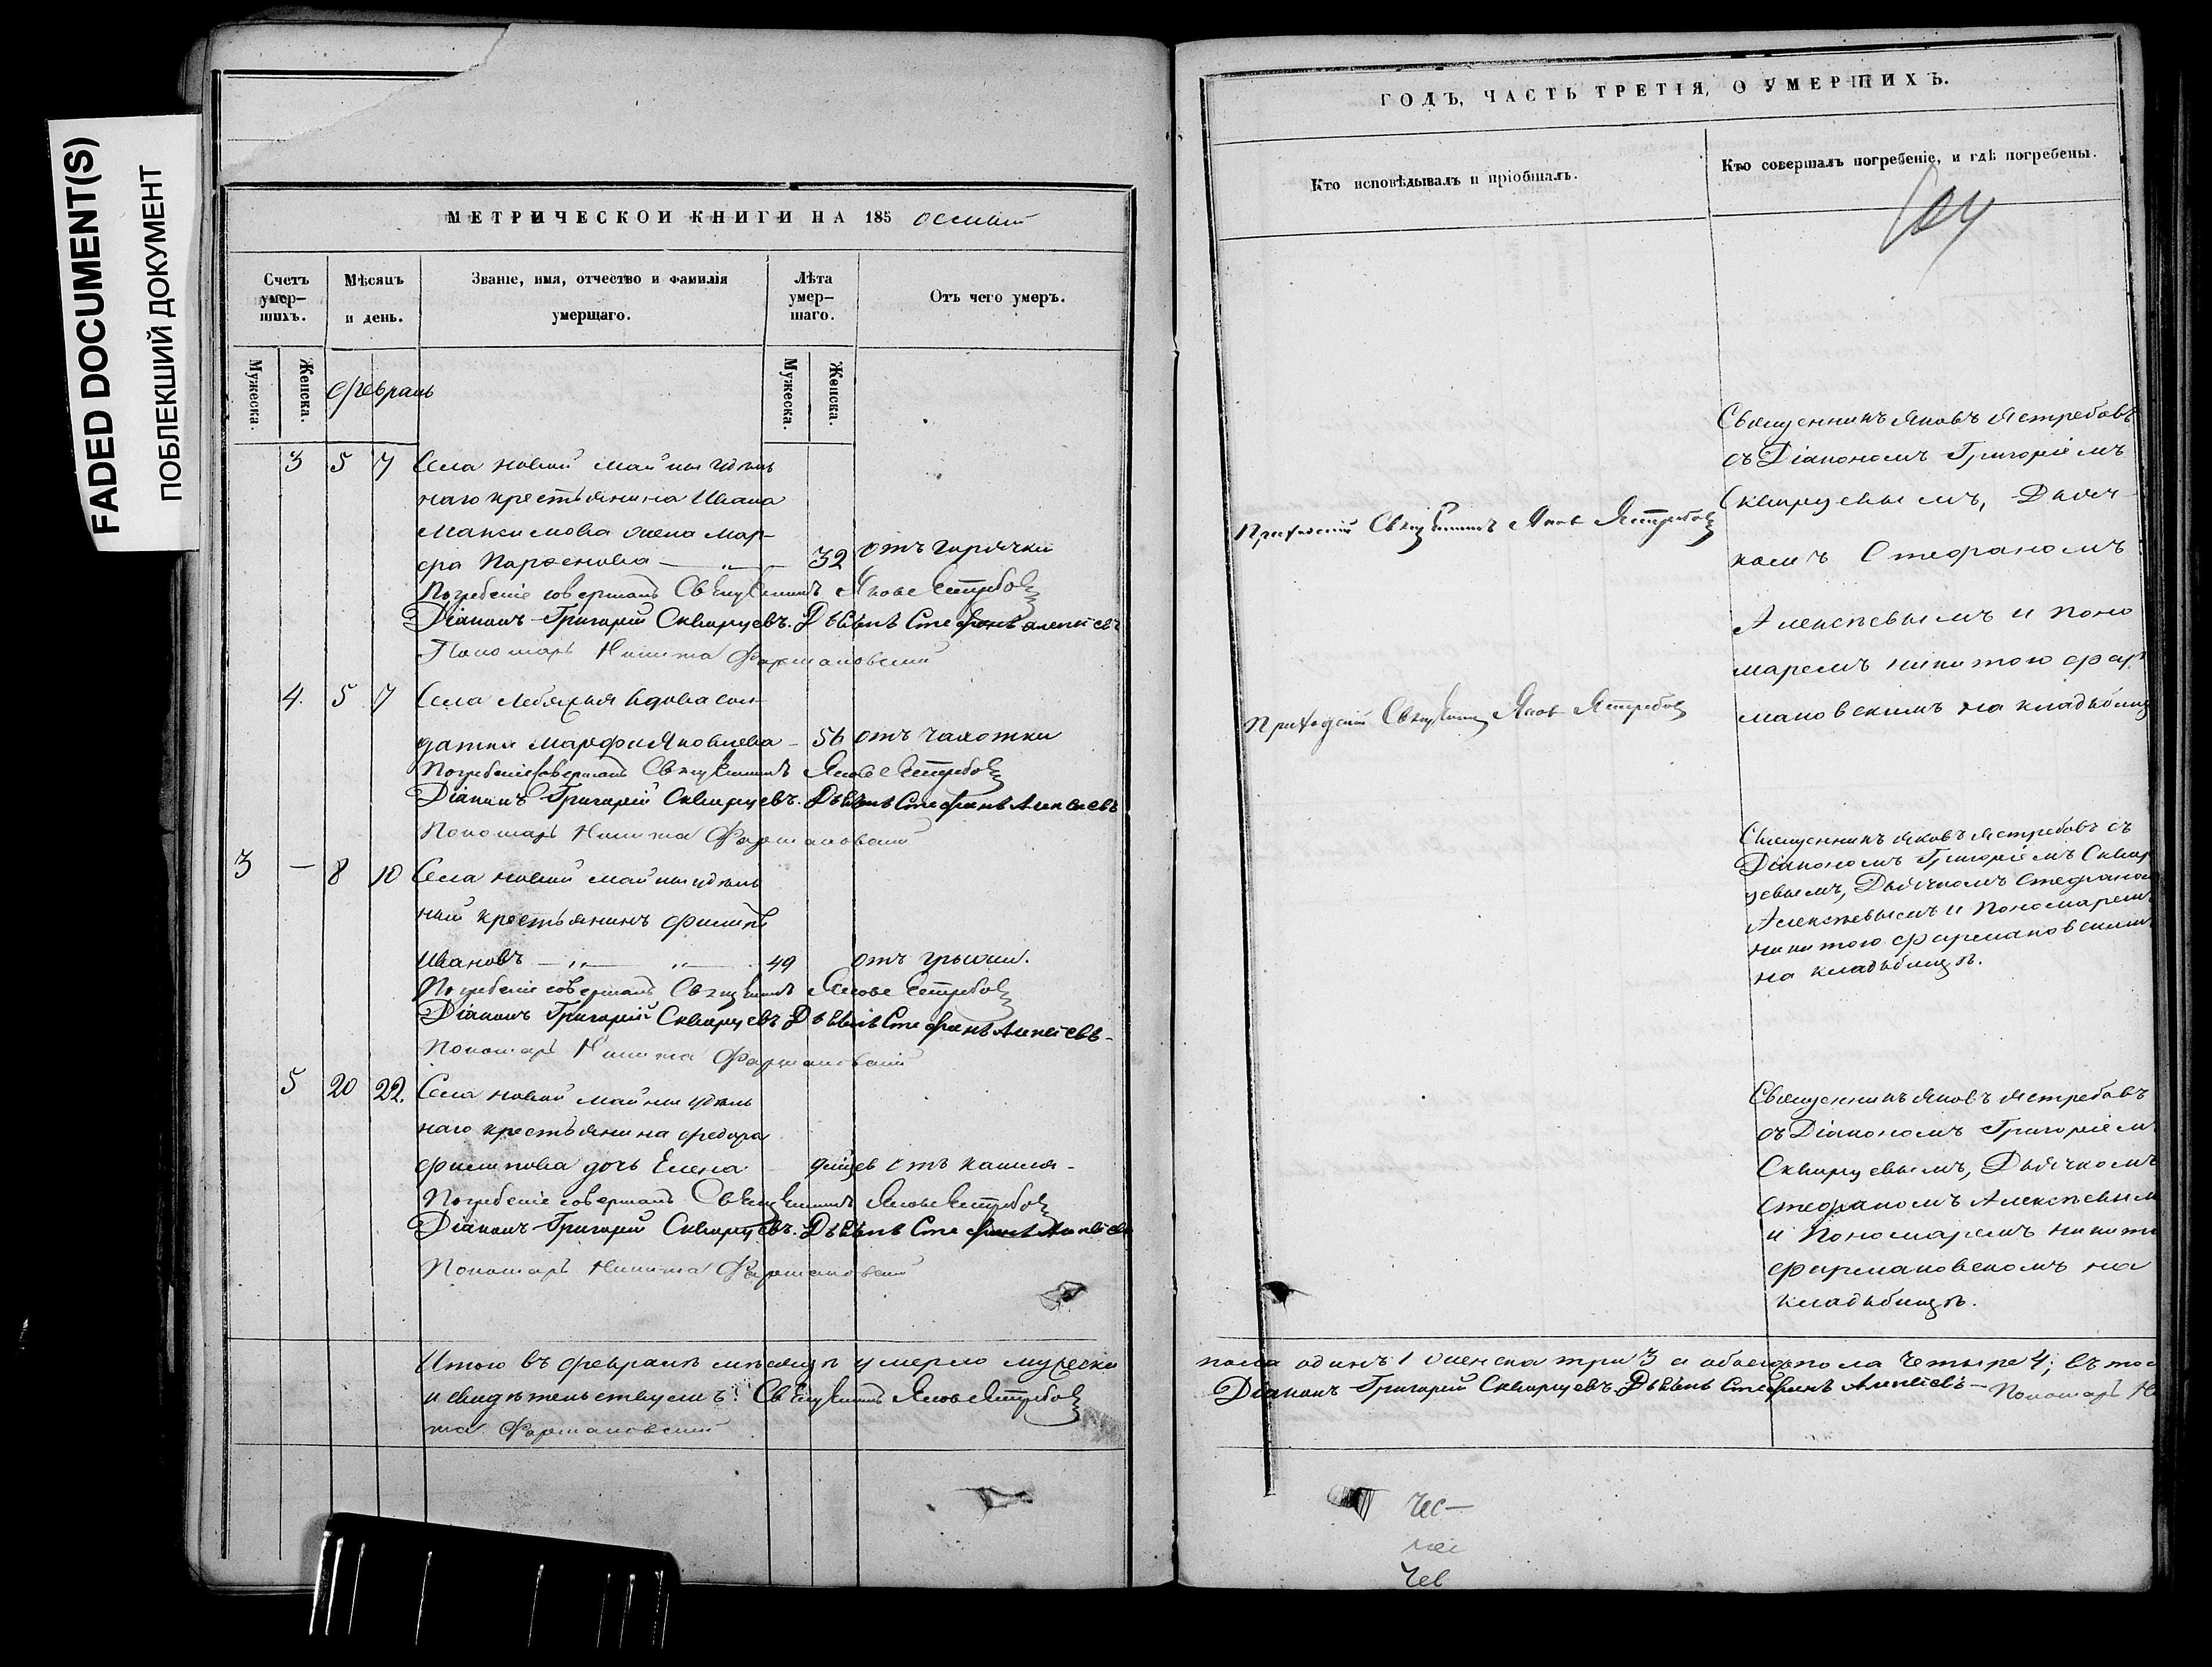 FADED DOCUMENT(S)
ПОБЛЕКШИЙ ДОКУМЕНТ
МЕТРИЧЕСКОЙ КНИГИ НА 185 осмый
Счетъ умер-шихъ.
Мѣсяцъ и день.
Званіе, имя, отчество и фамилія умершаго.
Лѣта умер-шаго.
Отъ чего умеръ.
Мужеска.
Женска.
Февраль
Мужеска.
Женска.
3 5 7 Села новой майны удѣль
наго крестьянина Ивана
Максимова жена Мар-
фа Парфенова 32 отъ горячки
Погребеніе совершалъ Священникъ Яковъ Ястребовъ
Діаконъ Григорій Скварцевъ. Дьячекъ Стефанъ Алексѣевъ
Пономарь Никита Фармаковскій
4. 5 7 Села Лебяжья вдова сол-
датка Марфа Яковлева 56 отъ чахотки
Погребеніе совершалъ Священникъ Яковъ Ястребовъ
Діаконъ Григорій Скварцевъ. Дьячекъ Стефанъ Алексѣевъ
Пономарь Никита Фармаковскій
3 — 8 10 Села новой майны удѣль
ный крестьянинъ Филипъ
Ивановъ 49 отъ грыжи.
Погребеніе совершалъ Священникъ Яковъ Ястребовъ
Діаконъ Григорій Скварцевъ Дьячекъ Стефанъ Алексѣевъ
Пономарь Никита Фармаковскій
5 20 22. Села новой майны удѣль
наго крестьянина Федора
Филипова дочь Елена отъ кашля
Погребеніе совершалъ Священникъ Яковъ Ястребовъ
Діаконъ Григорій Скварцевъ. Дьячекъ Стефанъ Алексѣевъ
Пономарь Никита Фармаковскій
Итого въ февралѣ мѣсяцѣ умерло мужеска
и свидѣтельствуемъ: Священникъ Яковъ Ястребовъ
та Фармаковскій
ГОДЪ, ЧАСТЬ ТРЕТІЯ, О УМЕРШИХЪ.
Кто исповѣдывалъ и пріобщалъ.
Кто совершалъ погребеніе, и гдѣ погребены.
Приходскій Священникъ Яковъ Ястребовъ
Приходскій Священникъ Яковъ Ястребовъ
Священникъ Яковъ Ястребовъ
съ Діакономъ Григоріемъ
Скварцевымъ, Дьяч-
комъ Стефаномъ
Алексѣевымъ и поно
маремъ никитою фар
маковскимъ на кладьбищ
Священникъ Яковъ Ястребовъ съ
Діакономъ Григоріемъ Сквар
цевымъ, Дьячкомъ Стефаном
Алексѣевымъ и Пономарем
никитою фармаковским
на кладьбищѣ.
Священникъ Яковъ Ястребовъ
съ Діакономъ Григоріем
Скварцевымъ, Дьячкомъ
Стефаномъ Алексѣевым
и Пономаремъ никито
фармаковскомъ на
кладьбищѣ.
пола одинъ 1 женска три 3 а обоего пола четыре 4; въ
Діаконъ Григорій Скварцевъ Дьячекъ Стефанъ Алексѣевъ Пономарь